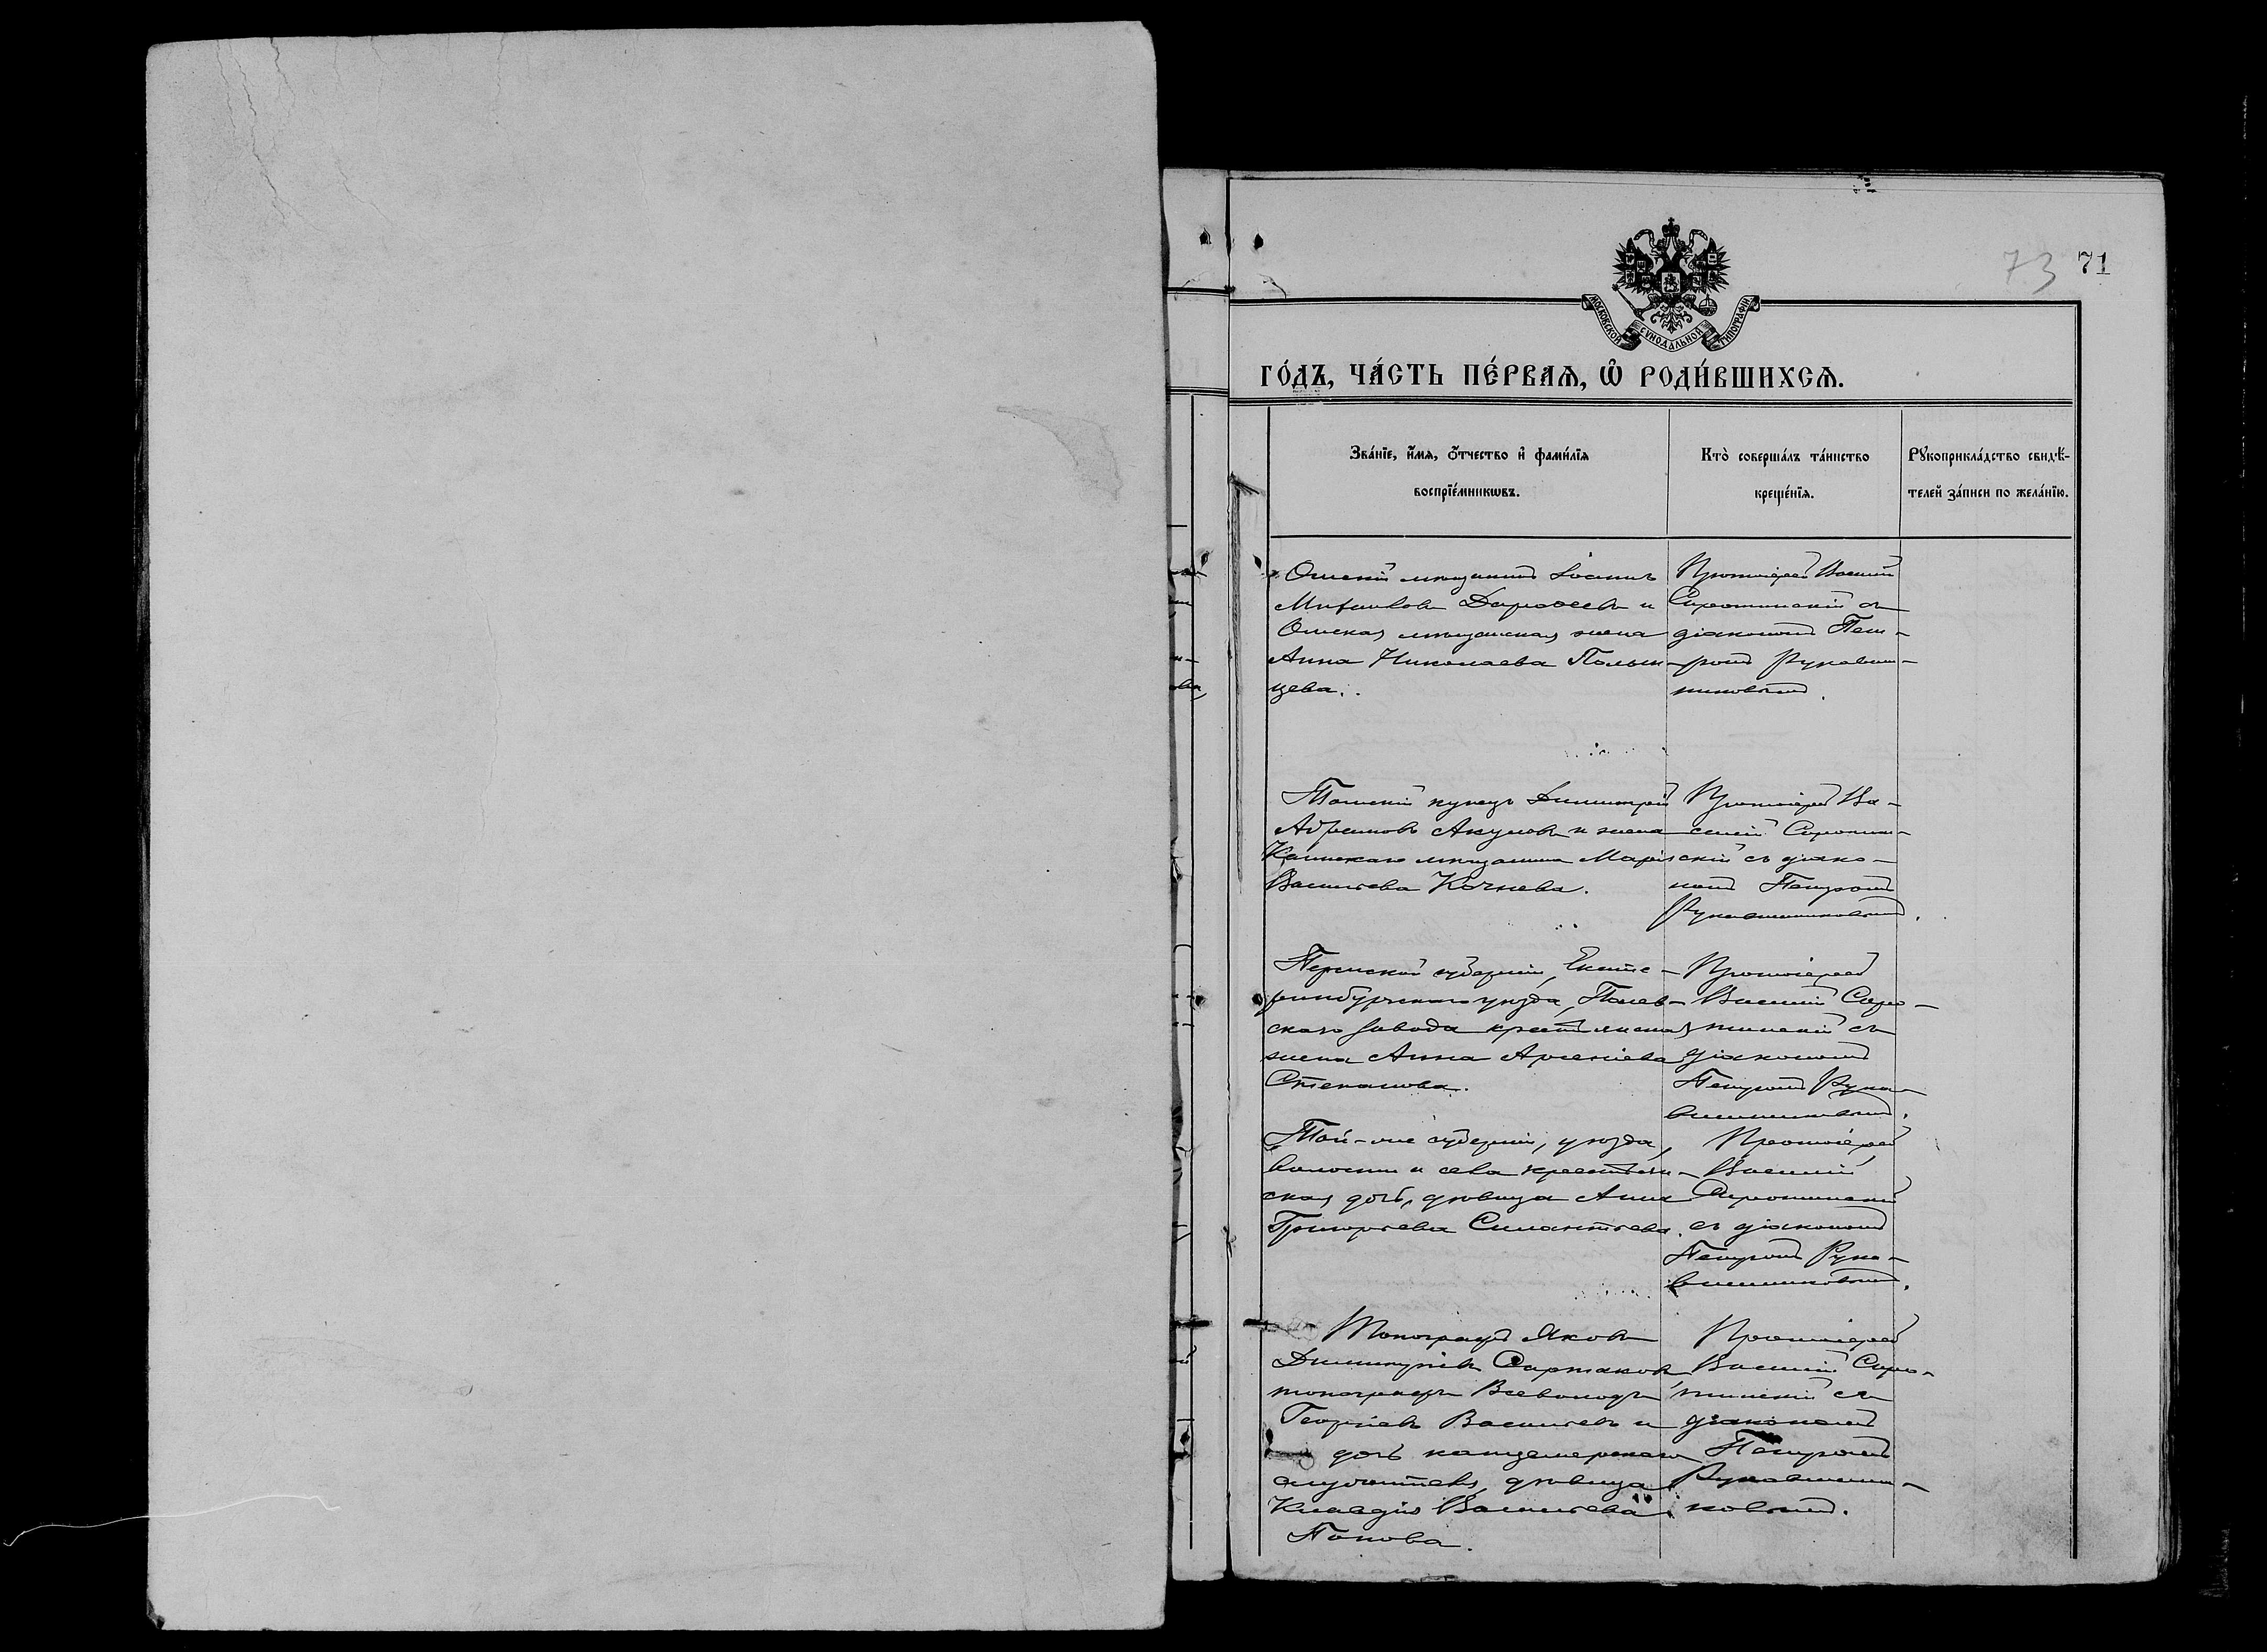 73 71
МОСКОВСКОЙ СѴНОДАЛЬНОЙ ТИПОГРАФІИ
ГО́ДЪ, ЧА́СТЬ ПЕ́РВАѦ, Ѡ҆ РОДИ́ВШИХСѦ.
Зва́нїе, и҆́мѧ, ѻ҆́тчество и҆ фами́лїѧ
воспрїе́мникѡвъ.
Кто̀ соверша́лъ та́инство
креще́нїѧ.
Рꙋкоприкла́дство свидѣ́-
телей за́писи по жела́нїю.
Омскій мѣщанинъ Іоаннъ
Дороѳеевъ и
Омская мѣщанская жена
Анна Николаева
цева.
Протоіерей Василій
Сиротинскій съ
діакономъ Пет-
ромъ Рукавиш-
никовымъ.
Томскій купецъ Димитрій
Акуловъ и жена
Каинскаго мѣщанина Марія
Васильева Кочнева.
Протоіерей Ва-
силій Сиротин-
скій съ діако-
номъ Петромъ
Рукавишниковымъ.
Пермской губерніи, Екате-
ринбургскаго уѣзда, Полев-
скаго завода крестьянская
жена Анна Арсеніева
Степанова.
Протоіерей
Василій Сиро-
тинскій съ
діакономъ
Петромъ Рука-
вишниковымъ.
Той-же губерніи, уѣзда,
волости и села крестьян-
ская дочь, дѣвица Анна
Григорьева Силантьева.
Протоіерей
Василій
Сиротинскій
съ діакономъ
Петромъ Рука-
вишниковымъ.
Топографъ Яковъ
Димитріевъ Сартаковъ
топографъ Всеволодъ
Георгіевъ Васильевъ и
дочь канцелярскаго
служителя, дѣвица
Клавдія Васильева
Попова.
Протоіерей
Василій Сиро-
тинскій съ
діакономъ
Петромъ
Рукавишни-
ковымъ.